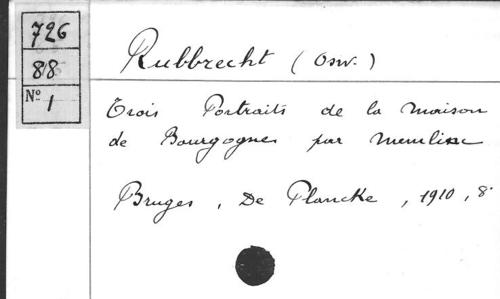 726
88
N° 1
Rubbrecht (Osw.)
Trois Portraits de la maison
de Bourgogne par Memlinc
Bruges, De Plancke, 1910, 8°